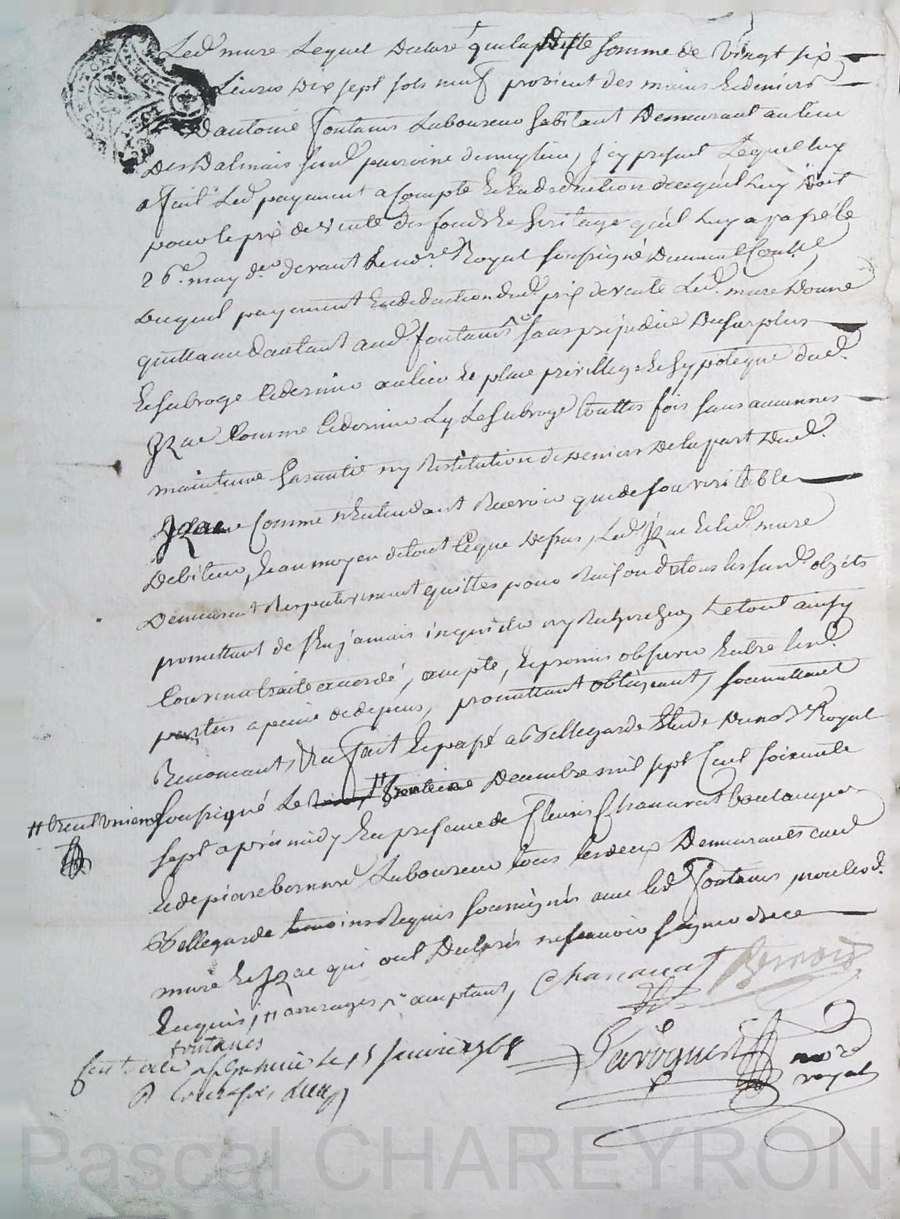 Led. mure Lequel Declare que la ditte somme de vingt six
Livres Dix sept sols neuf provient des mains et deniers
D'antoine fontanis Laboureur habitant Demeurant au lieu
Des Dalmais susd. paroisse de meylieu, icy present Lequel luy
a fait Led. payement a Compte et En deduction de ce qu'il Luy Doit
pour le prix de vente des fonds et heritage qu'il Luy a passé le
26e. may der. devant Le no.re Royal soussigné Duement Con.lé
Duquel payement et En deduction dud. prix de vente Led. mure Donne
quittance d'autant aud. fontanis sans prejudice Du surplus
Le subroge Ce dernier au lieu et place privillege et hypoteque dud.
Jzac Comme Ce dernier Ly Le subroge touttes fois sans aucunnes
maintenue Garantie ny Restitution de Deniers De la part Dud.
Jzac Comme n'Entendant Recevoir que de son veritable
Debiteur, et au moyen de tout Ce que Dessus, Led. Jzac et led. mure
Demeurent Respectivement quittes pour Raison de tous les susd. objets
promettant de n'En jamais inquieter ny Rechercher, Le tout ainsy
Convenu traité accordé, accepté, et promis observer Entre lesd.
parties a peine de depens, promettant obligeant, soumettant
Renoncant, &c fait et passé a Bellegarde Etude Du no.re Royal
soussigné Le trentieme Decembre mil sept Cent soixante
# trente unieme
sept apres midy En presence de fleury Chanavat boulanger
et de pierre bernard Laboureur tous les deux Demeurants aud.
Bellegarde temoins Requis soussignés avec led. fontanis, non led.
mure et Jzac qui ont Declarés ne scavoir signer de ce
Enquis, # acceptant, Chanavat Bernard
fontanes
Controllé a le 15 janvier 1768
R
no.re
royal
Pascal CHAREYRON